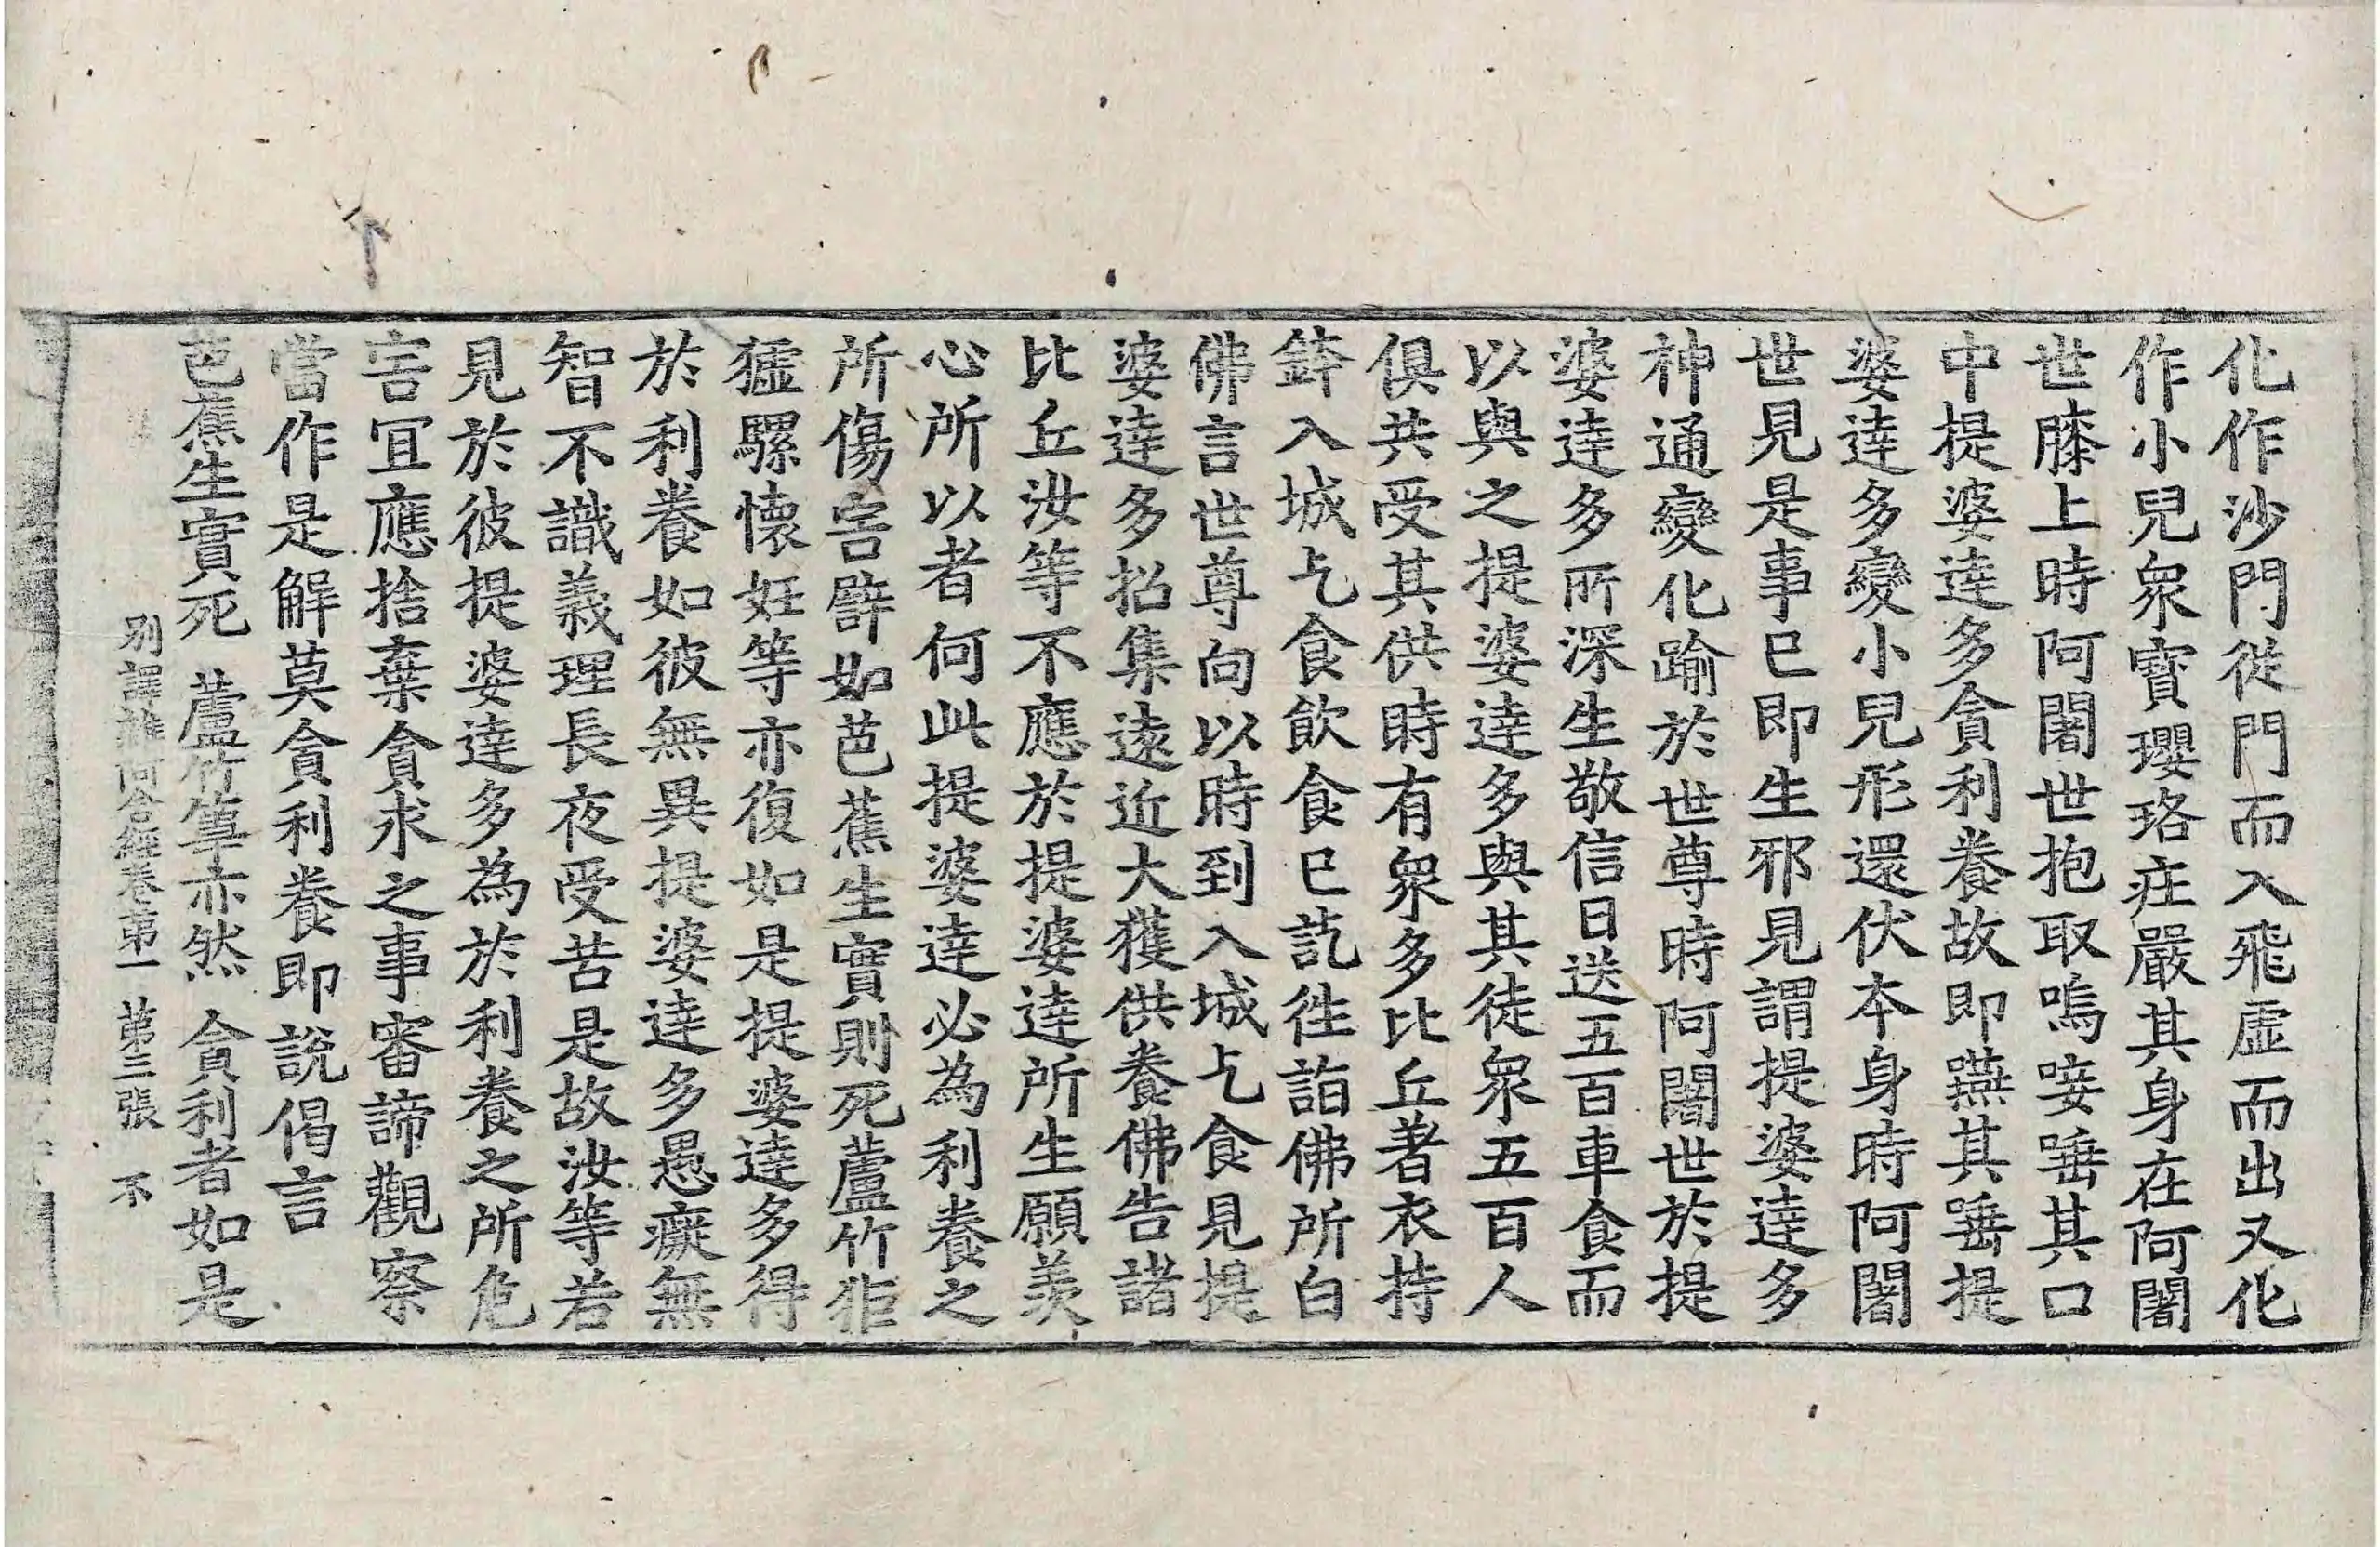 化作沙門従門而入飛虛而出又化
作小兒衆寶瓔珞疘嚴其身在阿闍
世膝上時阿闍世抱取嗚唼唾其口
中提婆逹多貪利養故即嚥其唾提
婆逹多變小兒形還伏本身時阿闍
世見是事已即生邪見謂提婆逹多
神通變化踰於世尊時阿闍世於提
婆逹多所深生敬信日送五百車食而
以與之提婆逹多與其徒衆五百人
俱共受其供時有衆多比丘著衣持
鉢入城乞食飲食已訖往詣佛所白
佛言世尊向以時到入城乞食見提
婆逹多招集遠近大獲供養佛告諸
比丘汝等不應於提婆逹所生願羡
心所以者何此提婆逹必為利養之
所傷害譬如芭蕉生實則死蘆竹䮫
驉騾懷妊等亦復如是提婆逹多得
於利養如彼無異提婆逹多愚癡無
智不識義理長夜受苦是故汝等若
見於彼提婆逹多為於利養之所危
害宜應捨棄貪求之事審諦觀察
當作是解莫貪利養即說偈言
芭蕉生實死　蘆竹葦亦然　貪利者如是
別譯雜阿含經卷第一　第三張　不